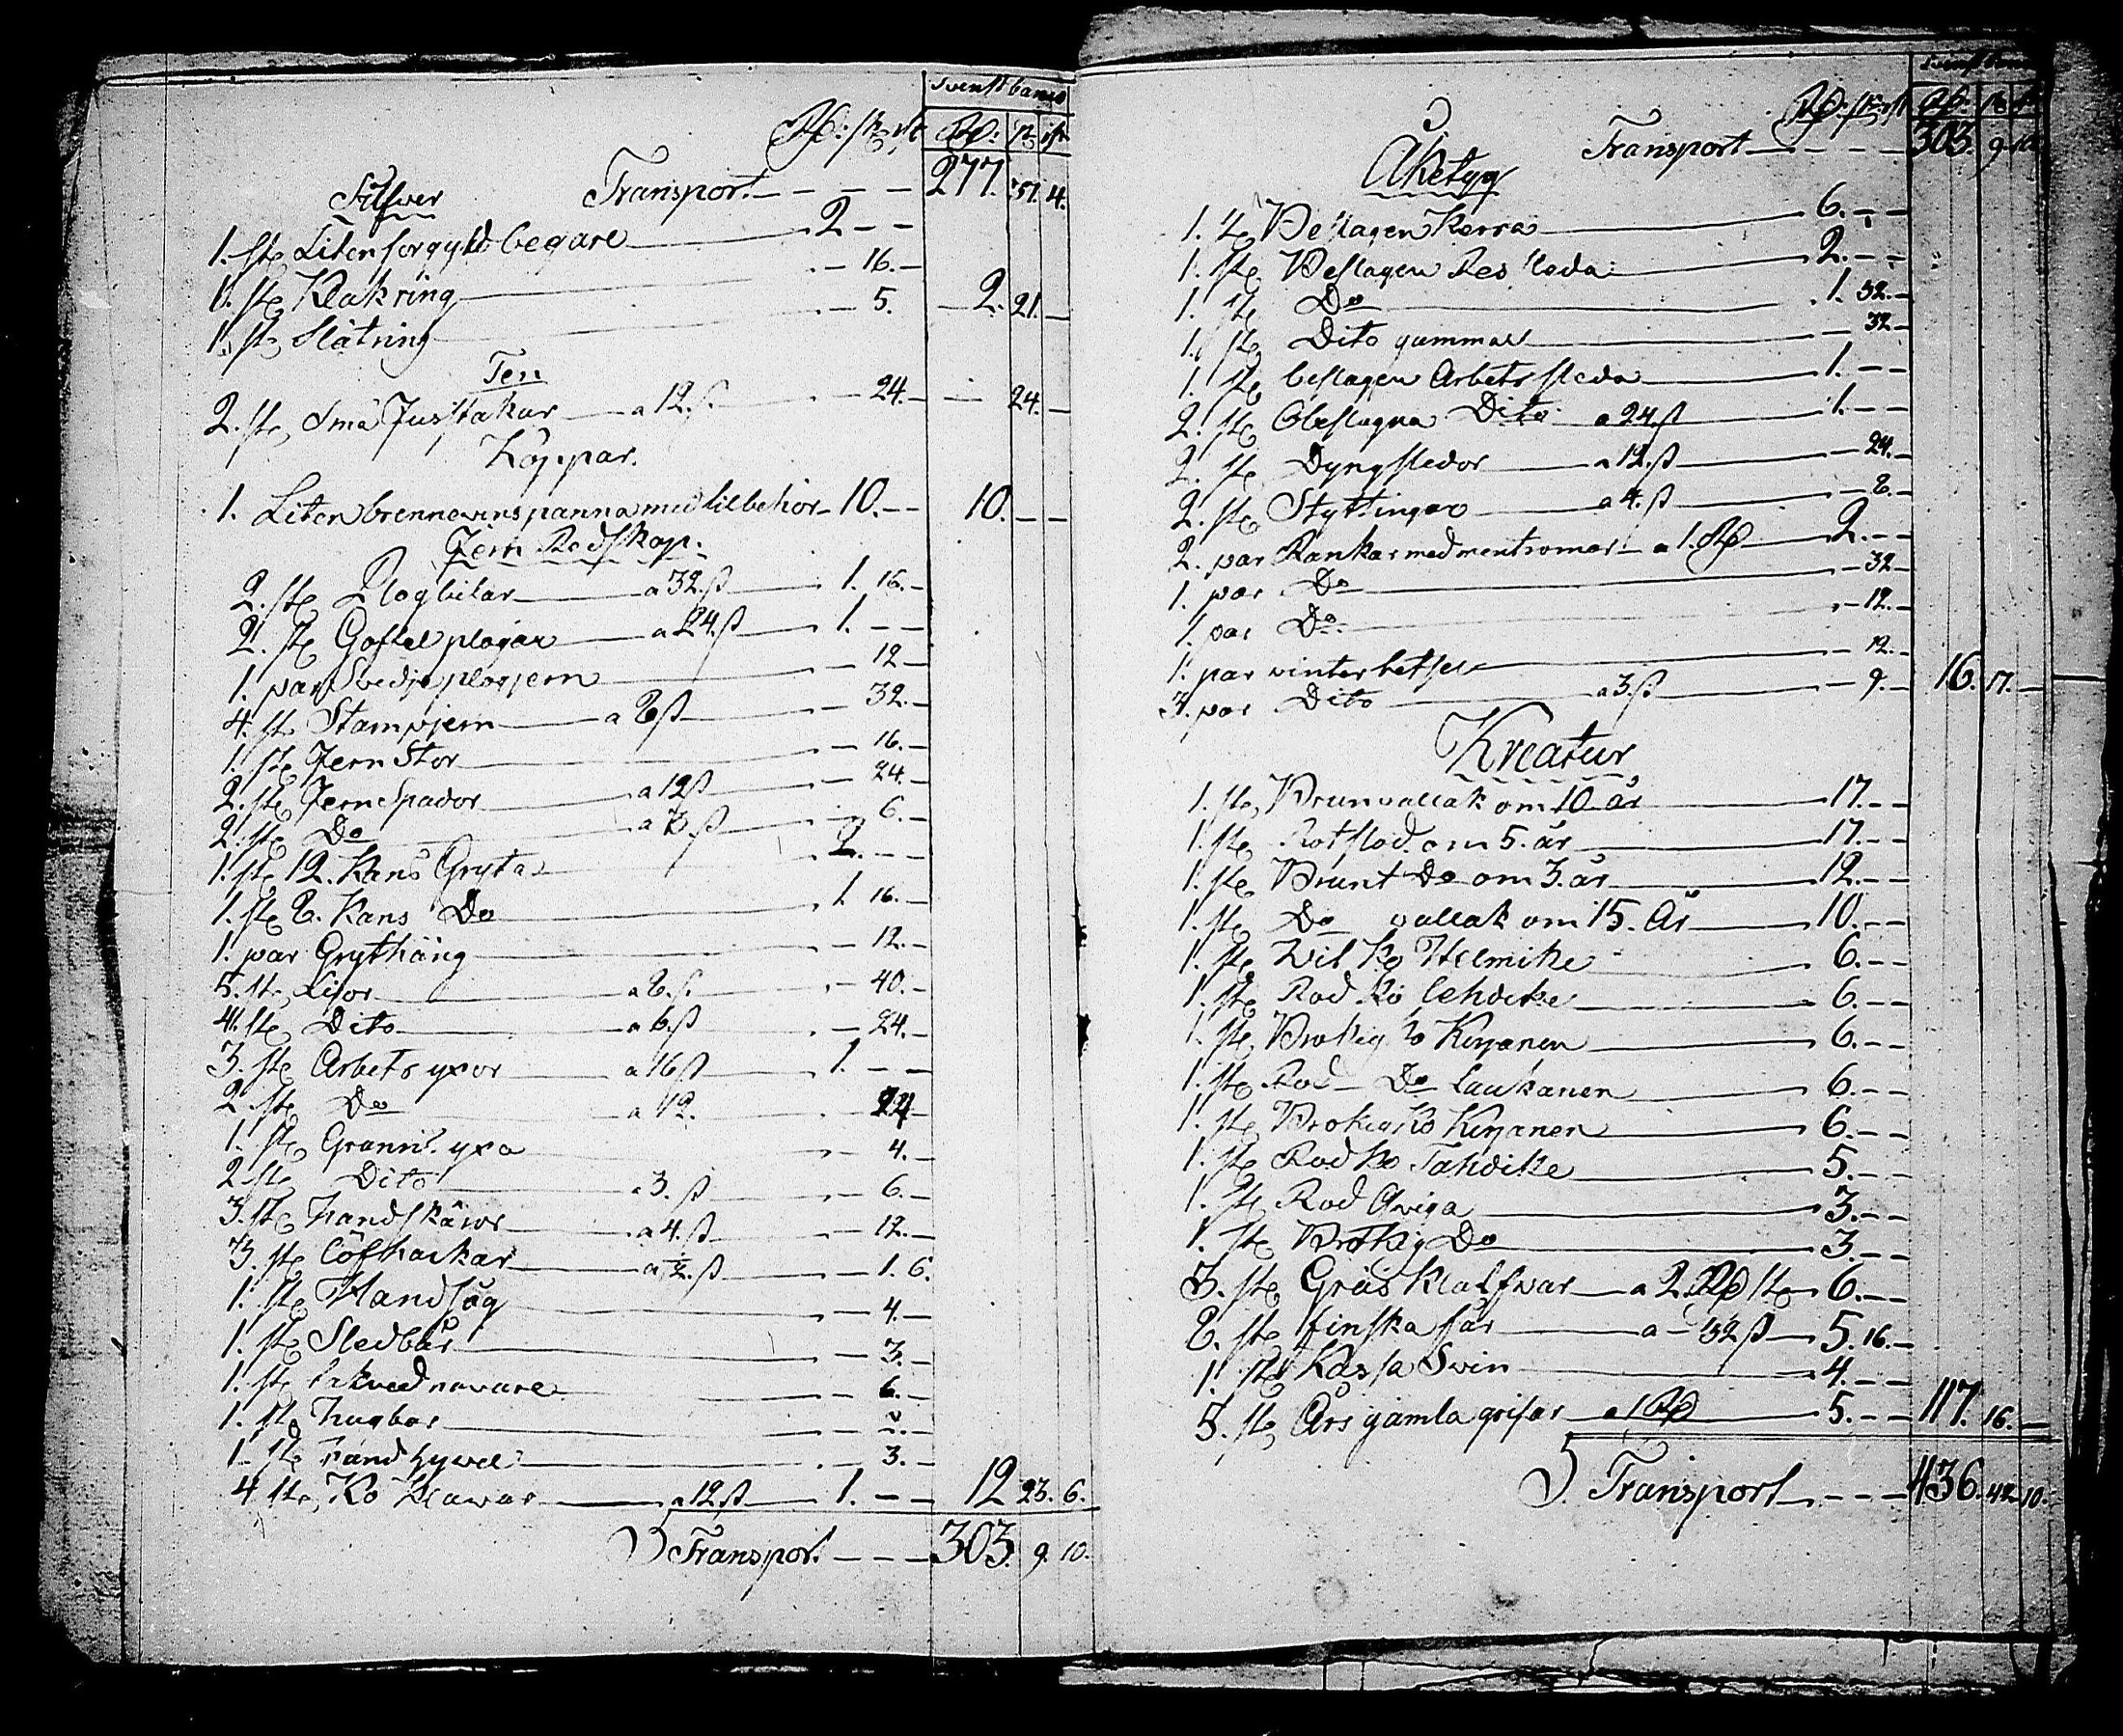 Svenskt banco
Rd: sk rst Rd: sk rst
Silfver Transport - - - 277. 37. 4.
1. st Liten forgyld begare 2 - -
1. st Klakring - 16. -
1. st Slätring - 5. - 2. 21. -
Ten
2. st Små Jusstakar a 12. ß - 24. - - 24. -
Koppar.
1. Liten brennevinspanna med tilbehör 10. - - 10. - -
Jern Redskap.
2. st Plogbilar a 32. ß 1. 16. -
2. st Goffel plogar a 24. ß 1. - -
1. par Svedje plogjern - 12 -
4. st Stampjern a 8 ß - 32. -
1. st Jern Stör - 16. -
2. st Jern Spador a 12 ß - 24. -
2. st Do a 3. ß - 6. -
1. st 12. Kans Gryta 2. - -
1. st 8. Kans Do 1. 16. -
1. par Grythäng - 12. -
5. st Lijor a 8. ß - 40. -
4. st Dito a 6. ß - 24. -
3. st Arbets yxor a 16 ß 1. - -
2. st Do a 12. - 24 -
1. st Grann yxa - 4. -
2 st Dito a 3. ß - 6. -
3. st Handskäror a 4. ß - 12. -
3. st Löfharkar a ½. ß - 1. 6.
1. st Handsåg - 4. -
1. st Sledbår - 3. -
1. st navare - 6. -
1. st Hugbor
1. st Handhyvel - 3. -
4 st Ko Klawar a 12 ß 1. - - 12 23. 6.
Transport - - - 303. 9. 10.
Svenskt banco
Rd: sk rst Rd: sk rst
Transport - - - 303. 9. 10
Åketyg
1. st Beslagen Kerra 6. - -
1. st Beslagen Res sleda 2. - -
1. st Do 1. 32. -
1. st Dito gammal - 32 -
1. st beslagen Arbets sleda 1. - -
2. st Obeslagna Dito a 24. ß 1. - -
2. st Dyngsledor a 12. ß - 24. -
2. st Styttingar a 4. ß - 8. -
2. par Rankar med a 1. Rd 2. - -
1. par Do - 32 -
1. par Do. - 12. -
1. par winter hetser - 12. -
3. par Dito a 3. ß - 9. - 16. 17. -
Kreatur
1. st Brun vallak om 10 år 17. - -
1. st Rot stod. om 5. år 17. - -
1. st Brunt Do om 3. år 12. - -
1. st Do vallak om 15. År 10. - -
1. st Ko Helmike 6. - -
1. st Rod Ko Lehdike 6. - -
1. st Brokig Ko Kirjanen 6. - -
1. st Rod Do Laukanen 6. - -
1. st Brokig Ko Kirjanen 6. - -
1. st Rod Ko Tahdike 5. - -
1. st Rod Qviga 3. - -
1. st Brokig Do 3. - -
3. st Gräs Kalfwar a 2 Rd st 6. - -
8. st finska får a - 32 ß 5. 16. -
1. st Kassa Svin 4. - -
5. st Års gamla grisar a 1 Rd 5. - - 117. 16. -
Transport - - - 436. 42. 10.